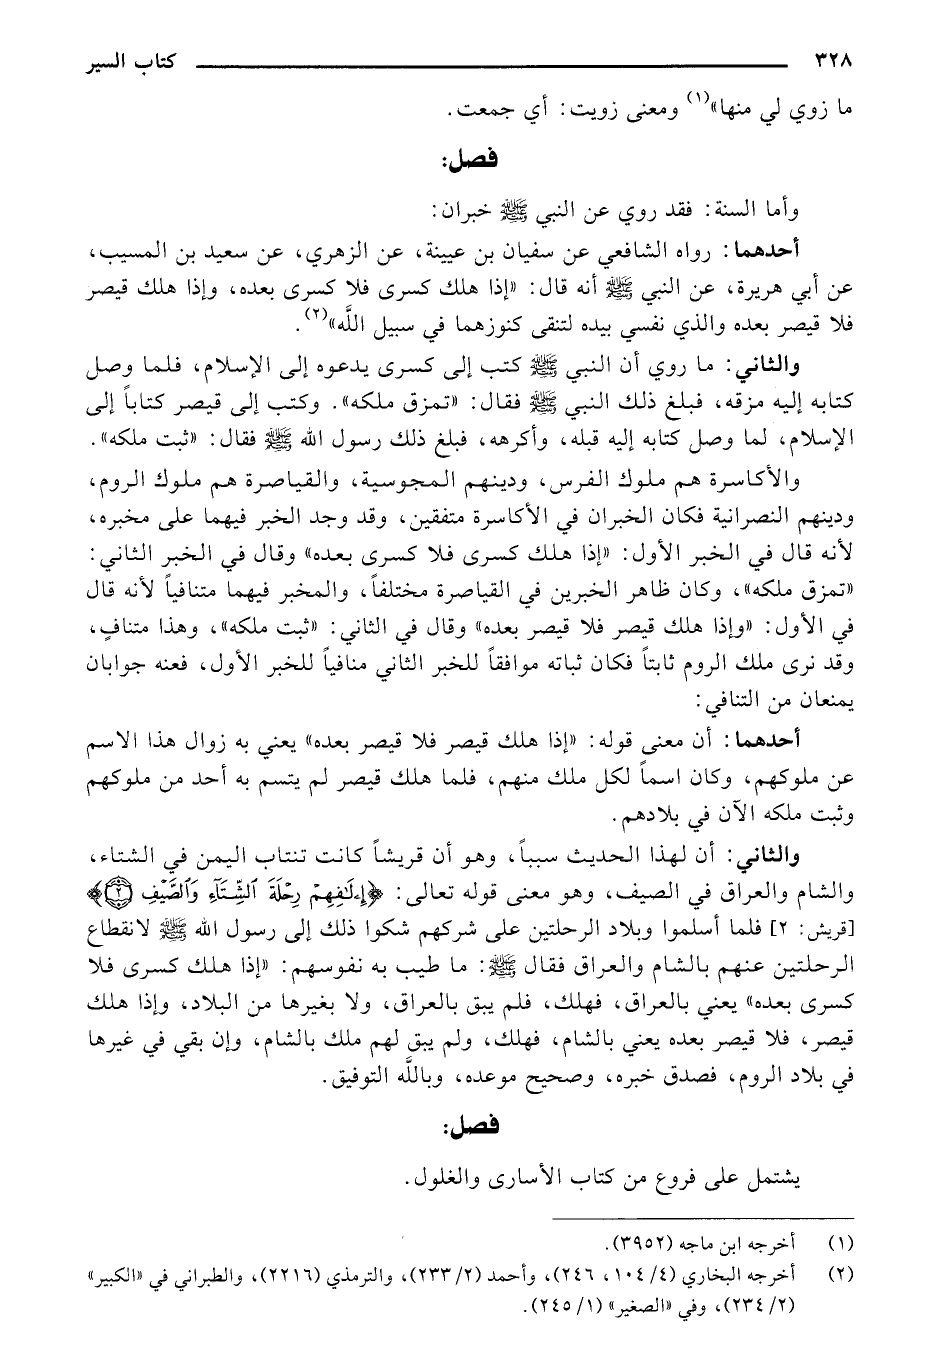 ٣٢٨ كتاب السير
ما زوي لي منها»(١) ومعنى زويت: أي جمعت.
فصل:
وأما السنة: فقد روي عن النبي ﷺ خبران:
أحدهما: رواه الشافعي عن سفيان بن عيينة، عن الزهري، عن سعيد بن المسيب،
عن أبي هريرة، عن النبي ﷺ أنه قال: «إذا هلك كسرى فلا كسرى بعده، وإذا هلك قيصر
فلا قيصر بعده والذي نفسي بيده لتنقى كنوزهما في سبيل اللَّه»(٢).
والثاني: ما روي أن النبي ﷺ كتب إلى كسرى يدعوه إلى الإسلام، فلما وصل
كتابه إليه مزقه، فبلغ ذلك النبي ﷺ فقال: «تمزق ملكه». وكتب إلى قيصر كتاباً إلى
الإسلام، لما وصل كتابه إليه قبله، وأكرهه، فبلغ ذلك رسول الله ﷺ فقال: «ثبت ملكه».
والأكاسرة هم ملوك الفرس، ودينهم المجوسية، والقياصرة هم ملوك الروم،
ودينهم النصرانية فكان الخبران في الأكاسرة متفقين، وقد وجد الخبر فيهما على مخبره،
لأنه قال في الخبر الأول: «إذا هلك كسرى فلا كسرى بعده» وقال في الخبر الثاني:
«تمزق ملكه»، وكان ظاهر الخبرين في القياصرة مختلفاً، والمخبر فيهما متنافياً لأنه قال
في الأول: «وإذا هلك قيصر فلا قيصر بعده» وقال في الثاني: «ثبت ملكه»، وهذا متنافٍ،
وقد نرى ملك الروم ثابتاً فكان ثباته موافقاً للخبر الثاني منافياً للخبر الأول، فعنه جوابان
يمنعان من التنافي:
أحدهما: أن معنى قوله: «إذا هلك قيصر فلا قيصر بعده» يعني به زوال هذا الاسم
عن ملوكهم، وكان اسماً لكل ملك منهم، فلما هلك قيصر لم يتسم به أحد من ملوكهم
وثبت ملكه الآن في بلادهم.
والثاني: أن لهذا الحديث سبباً، وهو أن قريشاً كانت تنتاب اليمن في الشتاء،
والشام والعراق في الصيف، وهو معنى قوله تعالى: ﴿إِۦلَٰفِهِمْ رِحْلَةَ ٱلشِّتَآءِ وَٱلصَّيْفِ ٢﴾
[قريش: ٢] فلما أسلموا وبلاد الرحلتين على شركهم شكوا ذلك إلى رسول الله ﷺ لانقطاع
الرحلتين عنهم بالشام والعراق فقال ﷺ: ما طيب به نفوسهم: «إذا هلك كسرى فلا
كسرى بعده» يعني بالعراق، فهلك، فلم يبق بالعراق، ولا بغيرها من البلاد، وإذا هلك
قيصر، فلا قيصر بعده يعني بالشام، فهلك، ولم يبق لهم ملك بالشام، وإن بقي في غيرها
في بلاد الروم، فصدق خبره، وصحيح موعده، وباللَّه التوفيق.
فصل:
يشتمل على فروع من كتاب الأسارى والغلول.
(١) أخرجه ابن ماجه (٣٩٥٢).
(٢) أخرجه البخاري (٤/ ١٠٤، ٢٤٦)، وأحمد (٢/ ٢٣٣)، والترمذي (٢٢١٦)، والطبراني في «الكبير»
(٢/ ٢٣٤)، وفي «الصغير» (١/ ٢٤٥).